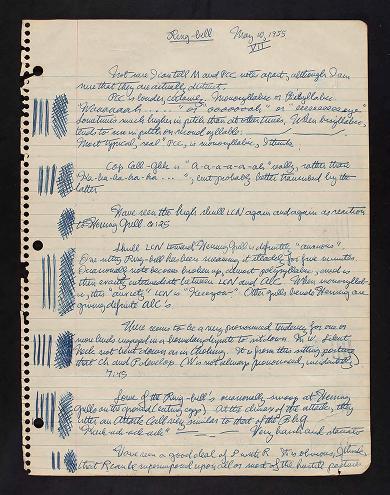 Ring-bill May 10, 1955
VII
Not sure I can tell M and PCC note apart, although I am
sure that they are actually distinct.
PCC is louder, certainly. Monosyllabic or Polysyllabic.
"Waaaaaah ....." or "ooooooah" or "eeeeeeeeeeeaye"
Sometimes much higher in pitch than at other times. When disyllabic,
tends to rise in pitch on second syllable.
Most typical, "real" PCC, is monosyllabic, I think.
Cop Call-Qlke is "A-a-a-a-a-ah" really, rather than
"Ha-ha-ha-ha-ha ....", but probably better transcribed by the
latter
Have seen the high shrill LCN again and again as reaction
to Herring Gull
Shrill LCN toward Herring Gull is definitely "anxious".
One sitting Ring-bill has been screaming it steadily for five minutes.
Occasionally note becomes broken up, almost polysyllabic, and is
then exactly intermediate between LCN and AlC. When monosyllab-
ic, this "anxiety" LCN is
Other gulls beside Herring are
giving definite AlC's
There seems to be a very pronounced tendency for one or
more birds engaged in a to sit down. In W. Silent,
Neck not bent down as in Choking. It is from this sitting posture
that Ch and P develop. (W is not always pronounced, incidentally)
7:45
Some of the Ring-bill's occasionally swoop at Herring
Gulls on the ground (eating eggs). At the climax of the attacks, they
utter an Attack Call very similar to that of the BlHG
"Kuk-uk-uk-uk" Very harsh and staccato
Have seen a good deal of P with R. It is obvious, I think,
that R can be superimposed upon all or most of the hostile postures